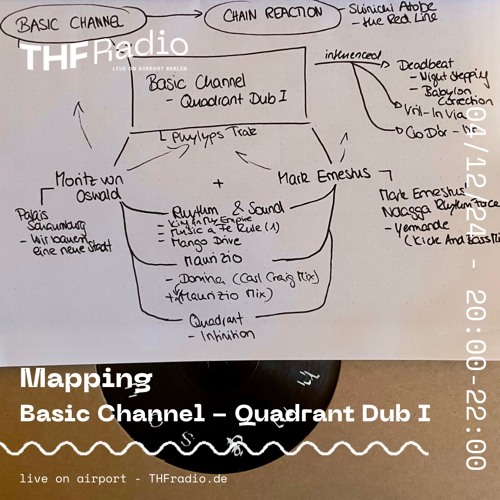 BASIC CHANNEL
CHAIN REACTION
Shinichi Atobe
- the Red Line
THF Radio
LIVE ON AIRPORT BERLIN
influenced
Basic Channel
- Quadrant Dub I
Deadbeat
- Night Stepping
- Babylon
Correction
Vril - In Via
Cio D'or -
Phylyps Trak
Moritz von
Oswald
+
Mark Ernestus
Palais
Schaumburg
- wir bauen
eine neue Stadt
Mark Ernestus'
Ndagga Rhythm Force
- Yermande
(Kick And Bass Mi
Rhythm & Sound
- King In My Empire
- Music a Fe Rule (1)
- Mango Drive
Maurizio
- Domina (Carl Craig Mix)
+ (Maurizio Mix)
Quadrant
- Infinition
04/12/24 - 20:00-22:00
Mapping
Basic Channel – Quadrant Dub I
live on airport - THFradio.de